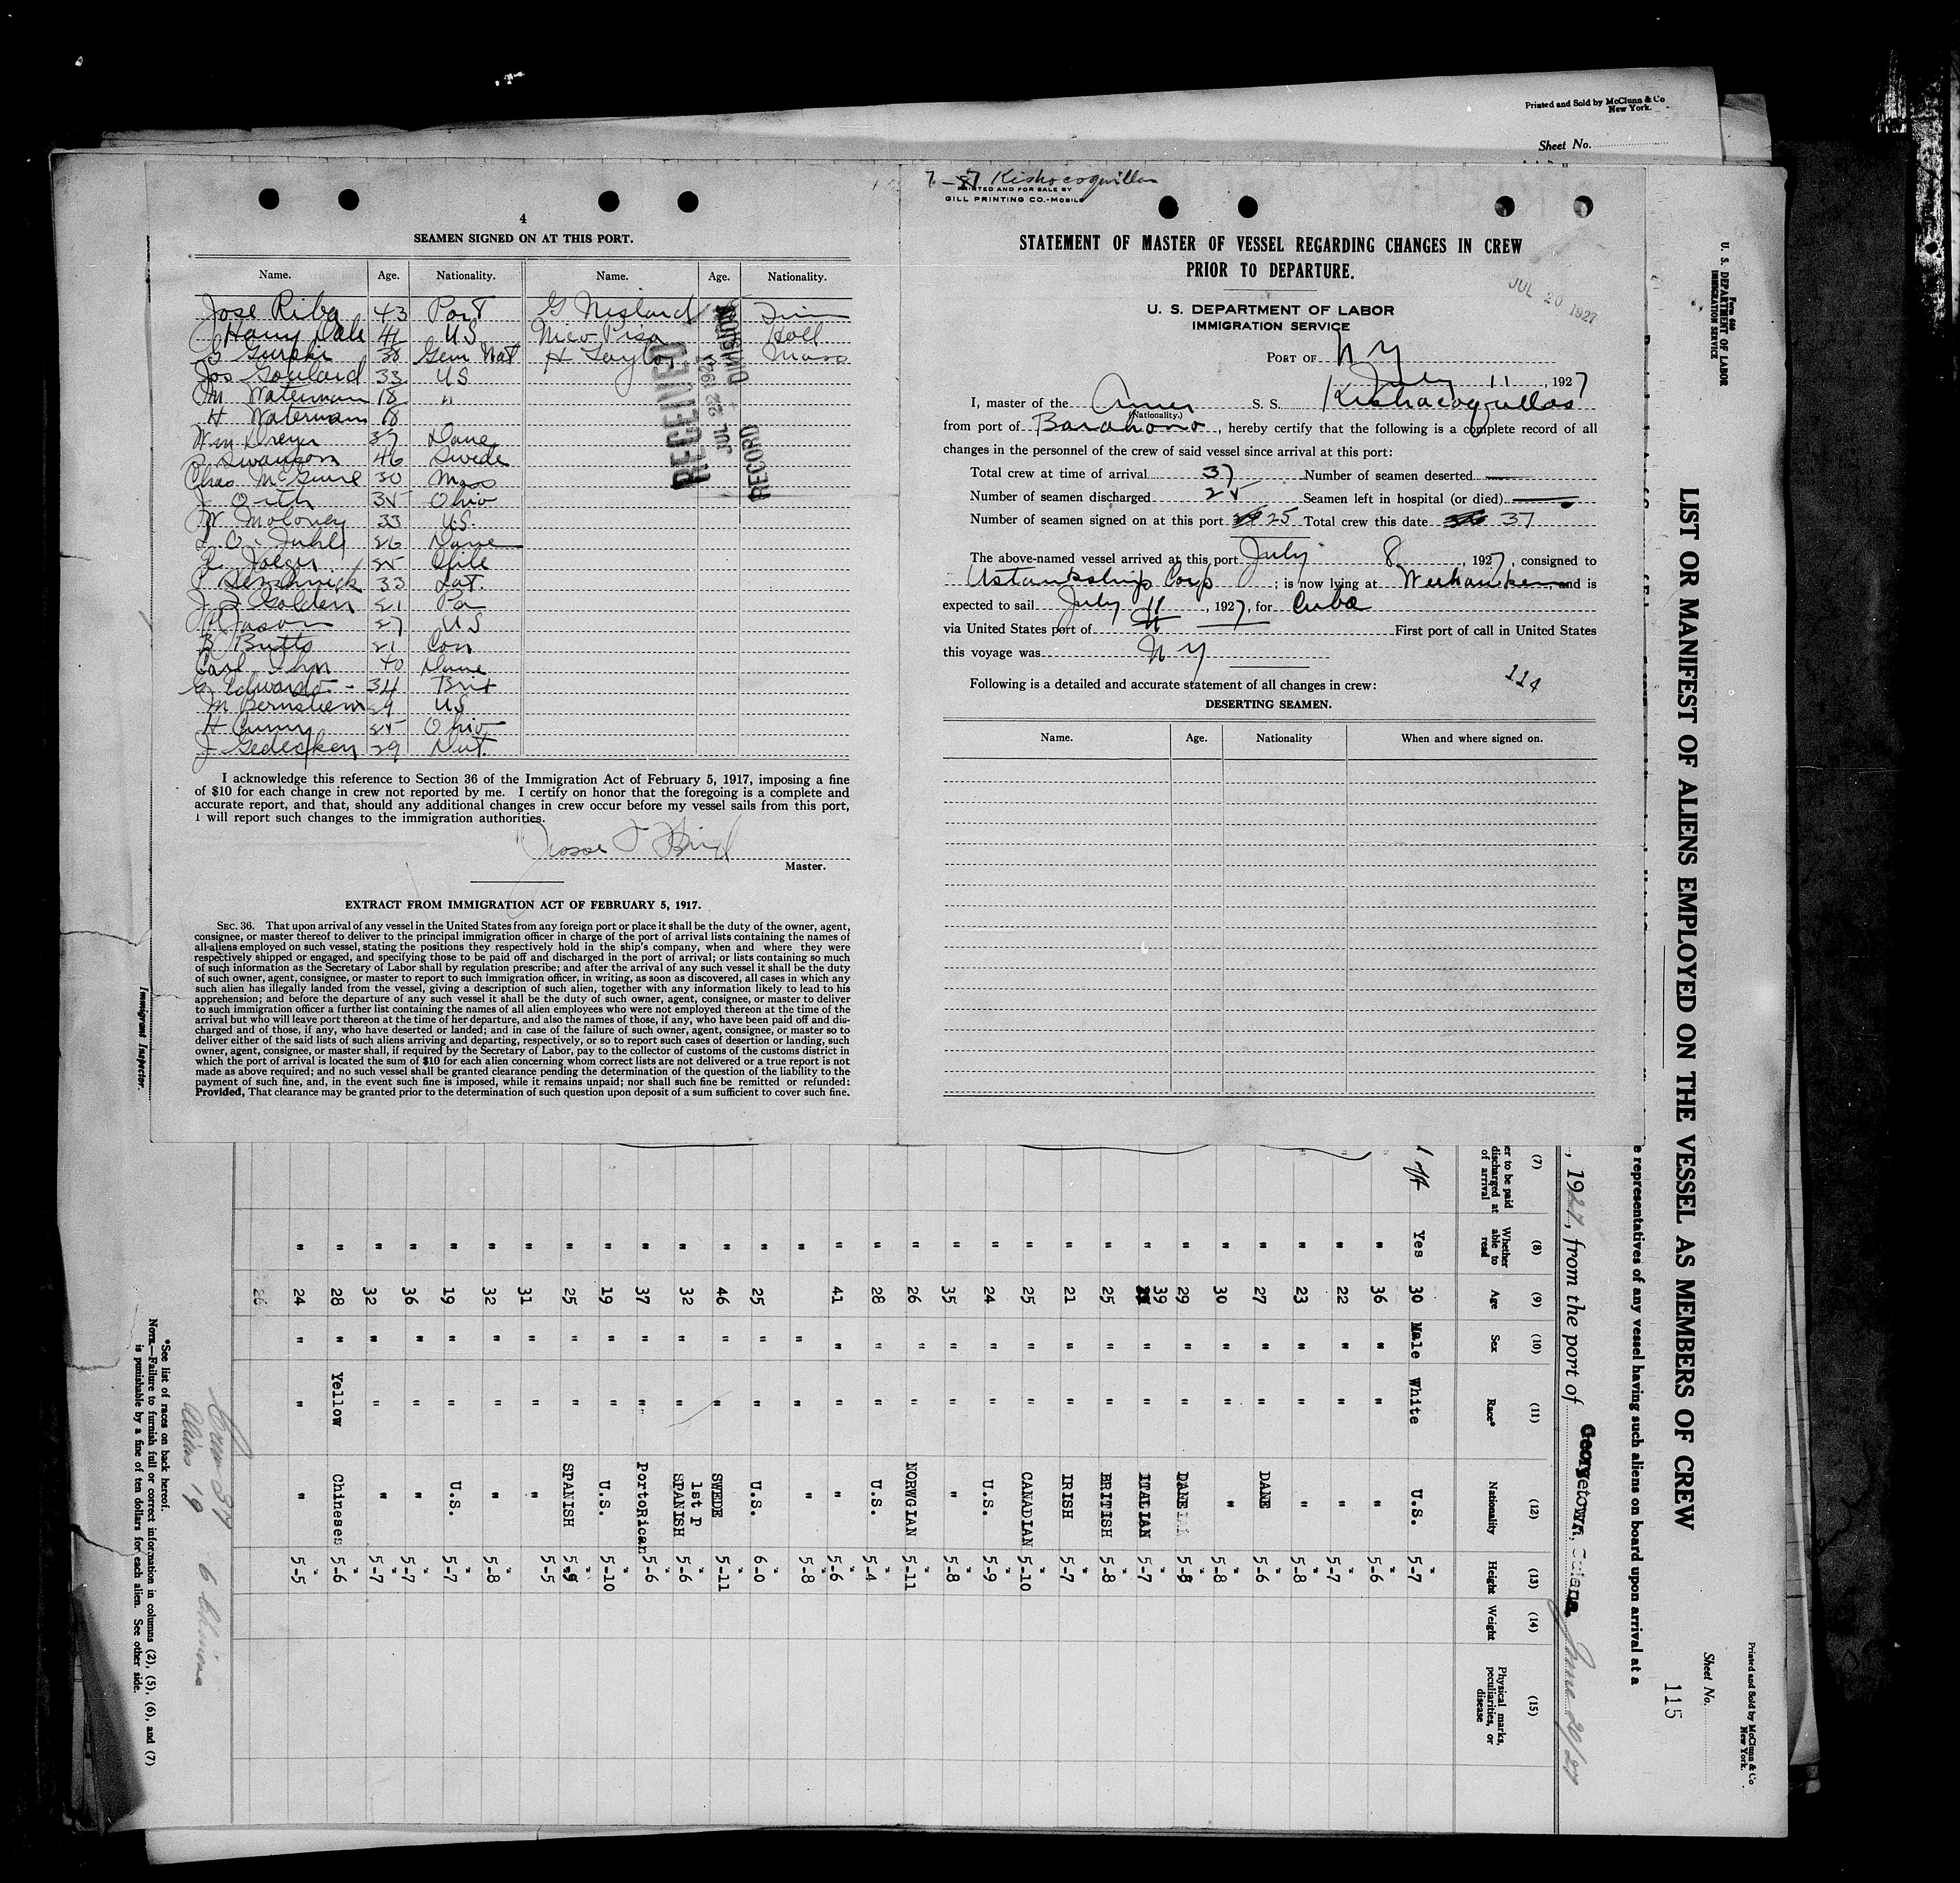 Printed and Sold by McClunn & Co
New York.
Sheet No.
4
SEAMEN SIGNED ON AT THIS PORT.
Name. Age. Nationality. Name. Age. Nationality.
Jose Riba 43 Port G Nisland Finn
Harry Dale 41 US Nico Pisa Holl
38 Gem Nat H Taylor Mass
Jos Goulard 33 US
M Waterman 18 "
H Waterman 18
Wm Dreyer 37 Dane
Swanson 46 Swede
Chas McGuire 30 Mass
J Orth 35 Ohio
W Moloney 33 U.S.
26 Dane
25 Chile
33 Lat.
J Golden 21 Pa
Jason 27 US
B Butts 21 Con
Carl 40 Dane
G Edwards - 34 Brit
M Bernstein 29 US
H Curry 25 Ohio
J Gedesken 29 Nat.
RECEIVED
JUL 22 1927
RECORD DIVISION
I acknowledge this reference to Section 36 of the Immigration Act of February 5, 1917, imposing a fine
of $10 for each change in crew not reported by me. I certify on honor that the foregoing is a complete and
accurate report, and that, should any additional changes in crew occur before my vessel sails from this port,
I will report such changes to the immigration authorities.
Master.
EXTRACT FROM IMMIGRATION ACT OF FEBRUARY 5, 1917.
SEC. 36. That upon arrival of any vessel in the United States from any foreign port or place it shall be the duty of the owner, agent,
consignee, or master thereof to deliver to the principal immigration officer in charge of the port of arrival lists containing the names of
all aliens employed on such vessel, stating the positions they respectively hold in the ship's company, when and where they were
respectively shipped or engaged, and specifying those to be paid off and discharged in the port of arrival; or lists containing so much
of such information as the Secretary of Labor shall by regulation prescribe; and after the arrival of any such vessel it shall be the duty
of such owner, agent, consignee, or master to report to such immigration officer, in writing, as soon as discovered, all cases in which any
such alien has illegally landed from the vessel, giving a description of such alien, together with any information likely to lead to his
apprehension; and before the departure of any such vessel it shall be the duty of such owner, agent, consignee, or master to deliver
to such immigration officer a further list containing the names of all alien employees who were not employed thereon at the time of the
arrival but who will leave port thereon at the time of her departure, and also the names of those, if any, who have been paid off and dis-
charged and of those, if any, who have deserted or landed; and in case of the failure of such owner, agent, consignee, or master so to
deliver either of the said lists of such aliens arriving and departing, respectively, or so to report such cases of desertion or landing, such
owner, agent, consignee, or master shall, if required by the Secretary of Labor, pay to the collector of customs of the customs district in
which the port of arrival is located the sum of $10 for each alien concerning whom correct lists are not delivered or a true report is not
made as above required; and no such vessel shall be granted clearance pending the determination of the question of the liability to the
payment of such fine, and, in the event such fine is imposed, while it remains unpaid; nor shall such fine be remitted or refunded:
Provided, That clearance may be granted prior to the determination of such question upon deposit of a sum sufficient to cover such fine.
Kishocoquillas
PRINTED AND FOR SALE BY
GILL PRINTING CO.-MOBILE
STATEMENT OF MASTER OF VESSEL REGARDING CHANGES IN CREW
PRIOR TO DEPARTURE.
JUL 20 1927
U. S. DEPARTMENT OF LABOR
IMMIGRATION SERVICE
PORT OF N Y
July 11, 1927
I, master of the Amer S. S. Kishacoquillas
(Nationality.)
from port of Barahona, hereby certify that the following is a complete record of all
changes in the personnel of the crew of said vessel since arrival at this port:
Total crew at time of arrival 37 Number of seamen deserted
Number of seamen discharged 25 Seamen left in hospital (or died)
Number of seamen signed on at this port 25 Total crew this date 37
The above-named vessel arrived at this port July 8, 1927, consigned to
Ustankship Corp; is now lying at Weehauken and is
expected to sail July 11, 1927, for Cuba
via United States port of First port of call in United States
this voyage was N Y
Following is a detailed and accurate statement of all changes in crew:
114
DESERTING SEAMEN.
Name. Age. Nationality When and where signed on.
Form 680
U. S. DEPARTMENT OF LABOR
IMMIGRATION SERVICE
LIST OR MANIFEST OF ALIENS EMPLOYED ON THE VESSEL AS MEMBERS OF CREW
Printed and Sold by McClunn & Co
New York.
Sheet No.
115
e representatives of any vessel having such aliens on board upon arrival at a
, 1927, from the port of Georgetown, Guiana June 20/27
(7) (8) (9) (10) (11) (12) (13) (14) (15)
er to be paid discharged at of arrival Whether able to read Age Sex Race* Nationality Height Weight Physical marks, peculiarities, or disease
Yes 30 Male White U.S. 5-7
" 36 " " " 5-6
" 22 " " " 5-7
" 23 " " " 5-8
" 27 " " DANE 5-6
" 30 " " " 5-8
" 29 " " DANE 5-8
" 39 " " ITALIAN 5-7
" 25 " " BRITISH 5-8
" 21 " " IRISH 5-7
" 25 " " CANADIAN 5-10
" 24 " " U.S. 5-9
" 35 " " " 5-8
" 26 " " NORWGIAN 5-11
" 28 " " U.S. 5-4
" 41 " " " 5-6
" " " " 5-8
" 25 " " U.S. 6-0
" 46 " " SWEDE 5-11
1st P
" 32 " SPANISH 5-6
" 37 " " PortoRican 5-6
" 19 " " U.S. 5-10
" 25 " " SPANISH 5-9
" 31 " " " 5-5
" 32 " " " 5-8
" 19 " " U.S. 5-7
" 36 " " " 5-7
" 32 " " " 5-7
" 28 " Yellow Chineses 5-6
" 24 " " " 5-5
26
Crew 37 6 Chinese
Aliens 19
*See list of races on back hereof.
NOTE.—Failure to furnish full or correct information in columns (2), (5), (6), and (7)
is punishable by a fine of ten dollars for each alien. See other side.
Immigrant Inspector.